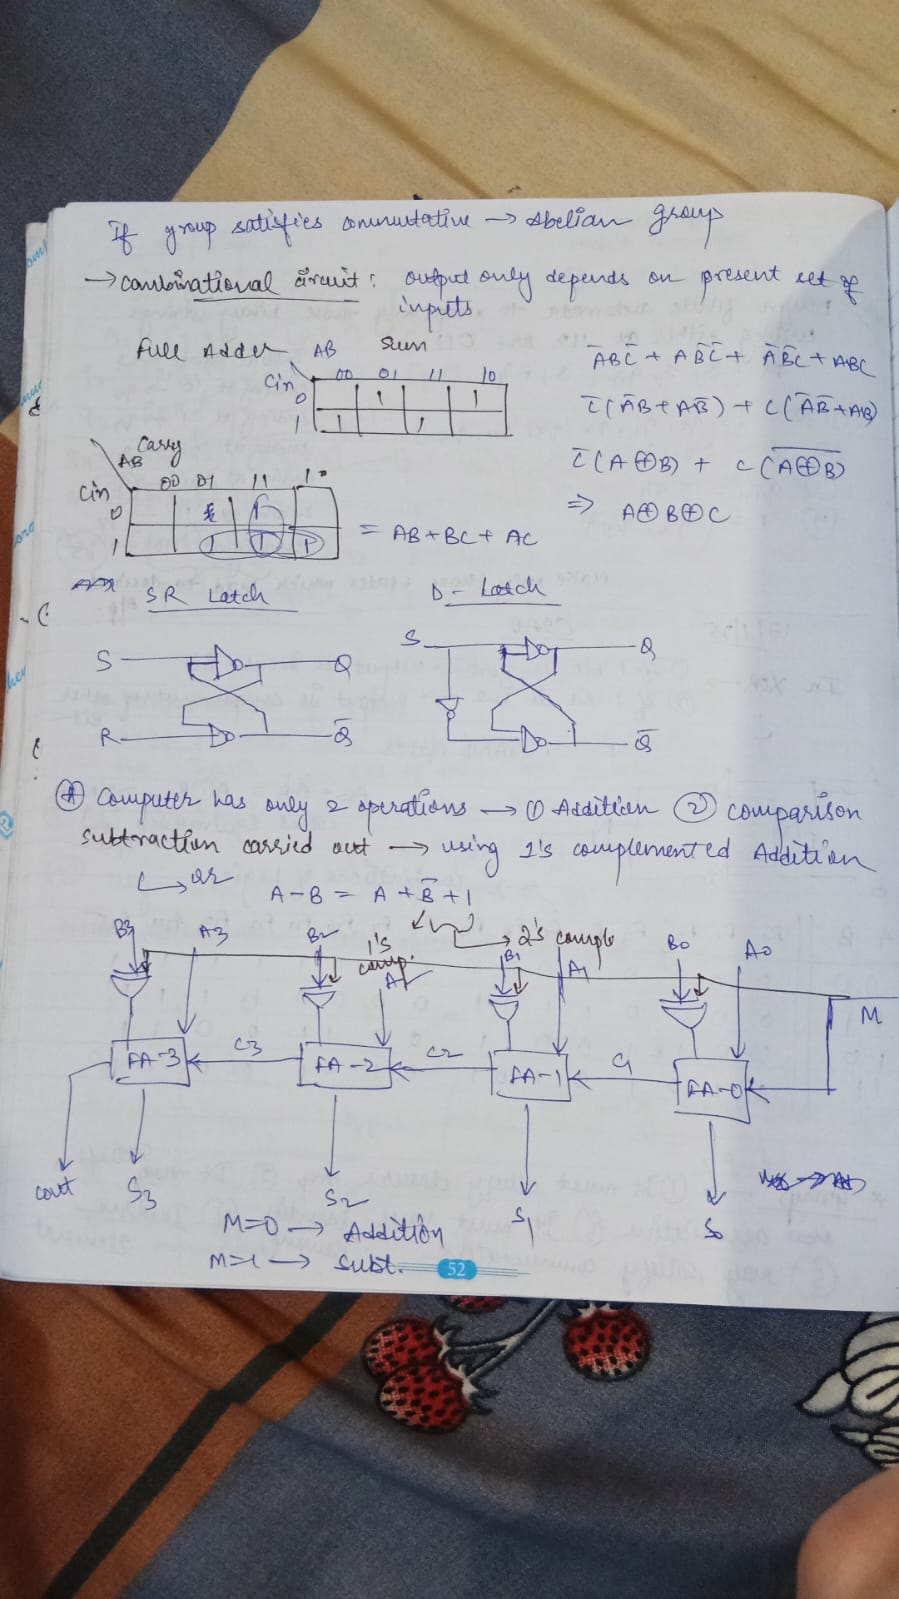 If group satisfies commutative → Abelian group
→ Combinational circuit: output only depends on present set of
inputs
Full Adder AB Sum
Cin 00 01 11 10
0 1 1
1 1 1
A̅BC̅ + AB̅C̅ + A̅B̅C + ABC
C̅(A̅B + AB̅) + C(A̅B̅ + AB)
C̅(A⊕B) + C(A⊕B)̅
⇒ A⊕B⊕C
Carry
AB
Cin 00 01 11 10
0 1
1 1 1 1
= AB + BC + AC
SR Latch D - Latch
S Q S Q
R Q̅ Q̅
Computer has only 2 operations → ① Addition ② comparison
subtraction carried out → using 1's complemented Addition
↳ or A-B = A + B̅ + 1
1's comp. → 2's comple
B3 A3 B2 A2 B1 A1 B0 A0
M
FA-3 C3 FA-2 C2 FA-1 C1 FA-0
cout S3 S2 S1 S0
M=0 → Addition
M=1 → Subt.
52